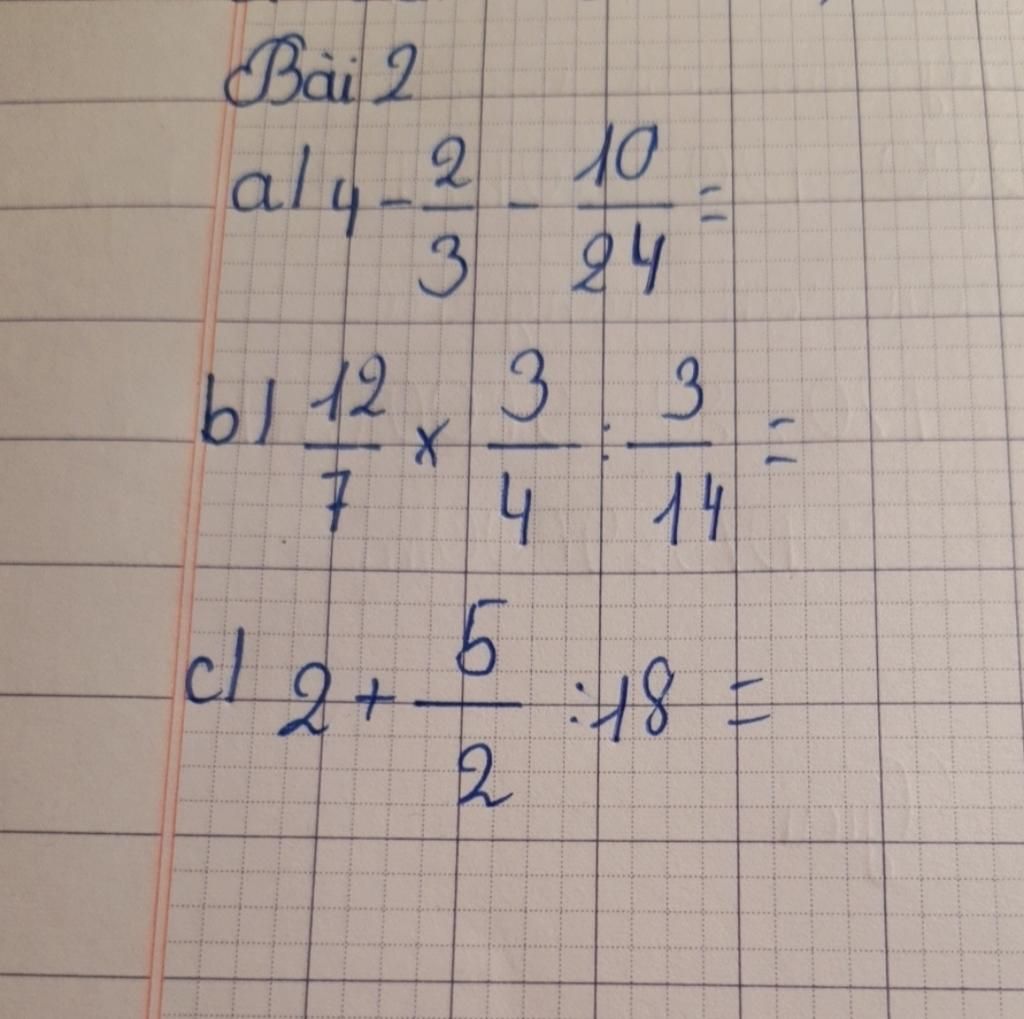 Bài 2
a/ 4 - 2/3 - 10/24 =
b/ 12/7 x 3/4 : 3/14 =
c/ 2 + 5/2 : 18 =